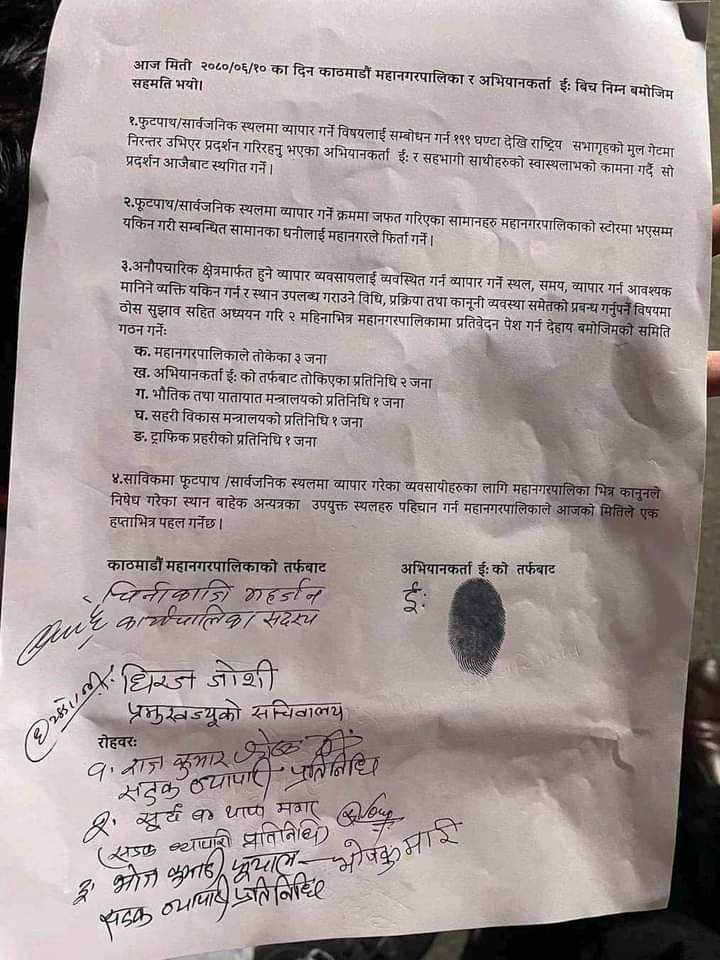 आज मिती २०८०/०६/१० का दिन काठमाडौं महानगरपालिका र अभियानकर्ता ईः बिच निम्न बमोजिम
सहमति भयो।
१.फुटपाथ/सार्वजनिक स्थलमा व्यापार गर्ने विषयलाई सम्बोधन गर्न १९९ घण्टा देखि राष्ट्रिय सभागृहको मुल गेटमा
निरन्तर उभिएर प्रदर्शन गरिरहनु भएका अभियानकर्ता ईः र सहभागी साथीहरुको स्वास्थलाभको कामना गर्दै सो
प्रदर्शन आजैबाट स्थगित गर्ने।
२.फूटपाथ/सार्वजनिक स्थलमा व्यापार गर्ने क्रममा जफत गरिएका सामानहरु महानगरपालिकाको स्टोरमा भएसम्म
यकिन गरी सम्बन्धित सामानका धनीलाई महानगरले फिर्ता गर्ने।
३.अनौपचारिक क्षेत्रमार्फत हुने व्यापार व्यवसायलाई व्यवस्थित गर्न व्यापार गर्ने स्थल, समय, व्यापार गर्न आवश्यक
मानिने व्यक्ति यकिन गर्न र स्थान उपलब्ध गराउने विधि, प्रक्रिया तथा कानूनी व्यवस्था समेतको प्रबन्ध गर्नुपर्ने विषयमा
ठोस सुझाव सहित अध्ययन गरि २ महिनाभित्र महानगरपालिकामा प्रतिवेदन पेश गर्न देहाय बमोजिमको समिति
गठन गर्नेः
क. महानगरपालिकाले तोकेका ३ जना
ख. अभियानकर्ता ईः को तर्फबाट तोकिएका प्रतिनिधि २ जना
ग. भौतिक तथा यातायात मन्त्रालयको प्रतिनिधि १ जना
घ. सहरी विकास मन्त्रालयको प्रतिनिधि १ जना
ङ. ट्राफिक प्रहरीको प्रतिनिधि १ जना
४.साविकमा फूटपाथ /सार्वजनिक स्थलमा व्यापार गरेका व्यवसायीहरुका लागि महानगरपालिका भित्र कानुनले
निषेध गरेका स्थान बाहेक अन्यत्रका उपयुक्त स्थलहरु पहिचान गर्न महानगरपालिकाले आजको मितिले एक
हप्ताभित्र पहल गर्नेछ।
काठमाडौं महानगरपालिकाको तर्फबाट
अभियानकर्ता ईः को तर्फबाट
चिनीकाजि महर्जन
ईः
कार्यपालिका सदस्य
धिरज जोशी
प्रमुखज्यूको सचिवालय
रोहवरः
१. राज कुमार
सडक व्यापारी प्रतिनिधि
२. सूर्य थापा मगर
(सडक व्यापारी प्रतिनिधि)
३. भोज कुमारी भोजकुमारी
सडक व्यापारी प्रतिनिधि